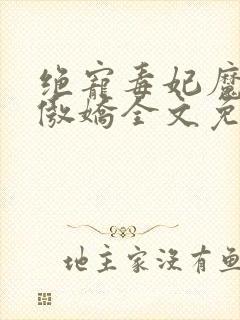 绝宠毒妃魔
傲娇全文免
地主家没有鱼